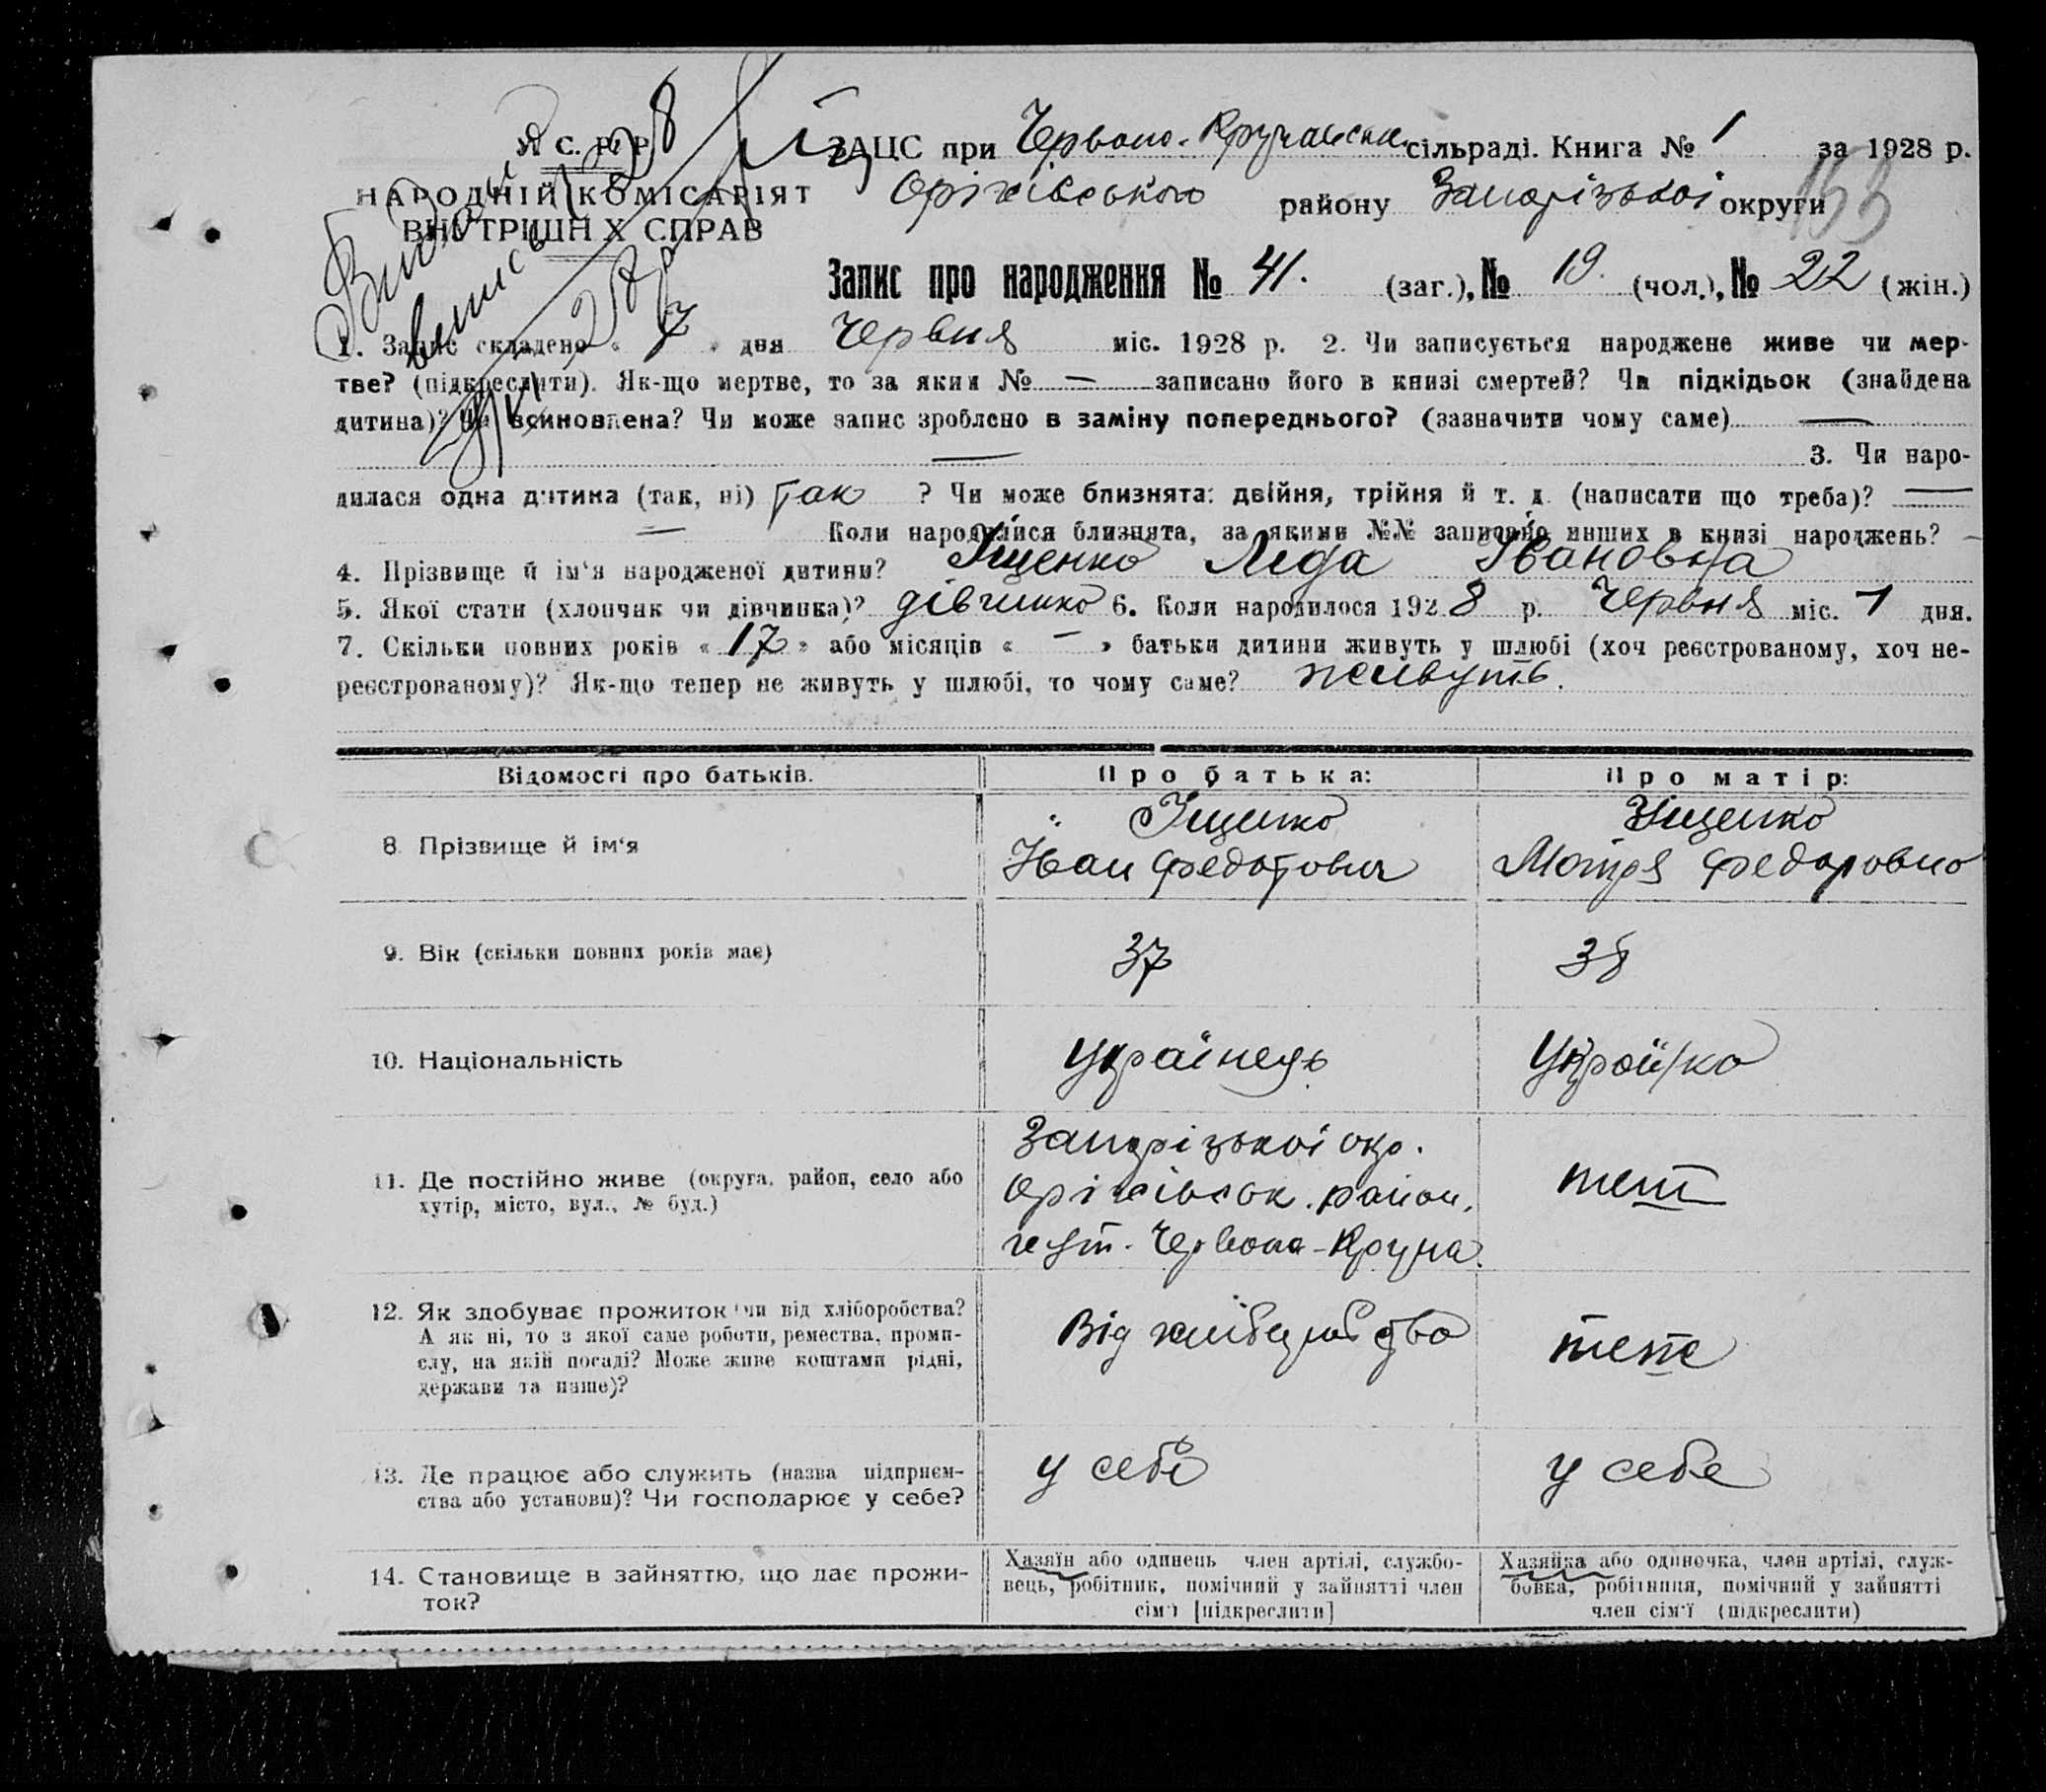 У. С. Р. Р.
НАРОДНІЙ КОМІСАРІЯТ
ВНУТРІШНІХ СПРАВ
ЗАЦС при Червоно-Кручанськ. сільраді. Книга № 1 за 1928 р.
Оріхівського району Запорізької округи
153
Запис про народження № 41. (заг.), № 19. (чол.), № 22 (жін.)
1. Запис складено « 7 » дня Червня міс. 1928 р. 2. Чи записується народжене живе чи мер-
тве? (підкреслити). Як-що мертве, то за яким № — записано його в книзі смертей? Чи підкідьок (знайдена
дитина)? Чи всиновлена? Чи може запис зроблено в заміну попереднього? (зазначити чому саме) —
— 3. Чи наро-
дилася одна дитина (так, ні) так ? Чи може близнята: двійня, трійня й т. д. (написати що треба)? —
— Коли народилися близнята, за якими №№ записано инших в книзі народжень? —
4. Прізвище й ім'я народженої дитини? Іщенко Ліда Івановна
5. Якої стати (хлопчик чи дівчинка)? дівчинка 6. Коли народилося 1928 р. Червня міс. 1 дня.
7. Скільки повних років « 17 » або місяців « — » батьки дитини живуть у шлюбі (хоч реєстрованому, хоч не-
реєстрованому)? Як-що тепер не живуть у шлюбі, то чому саме? живуть.
Відомості про батьків. Про батька: Про матір:
8. Прізвище й ім'я
Іщенко
Іван Федотович
Іщенко
Мотря Федоровна
9. Вік (скільки повних років має) 37 38
10. Національність Українець Українка
11. Де постійно живе (округа, район, село або
хутір, місто, вул., № буд.)
Запорізької окр.
Оріхівськ. район,
хут. Червона-Круча.
теж
12. Як здобуває прожиток (чи від хліборобства?
А як ні, то з якої саме роботи, ремества, проми-
слу, на якій посаді? Може живе коштами рідні,
держави та инше)?
Від
теж
13. Де працює або служить (назва підприєм-
ства або установи)? Чи господарює у себе?
у себе
у себе
14. Становище в зайняттю, що дає прожи-
ток?
Хазяїн або одинець член артілі, службо-
вець, робітник, помічний у зайнятті член
сім'ї [підкреслити]
Хазяйка або одиночка, член артілі, служ-
бовка, робітниця, помічний у зайнятті
член сім'ї (підкреслити)